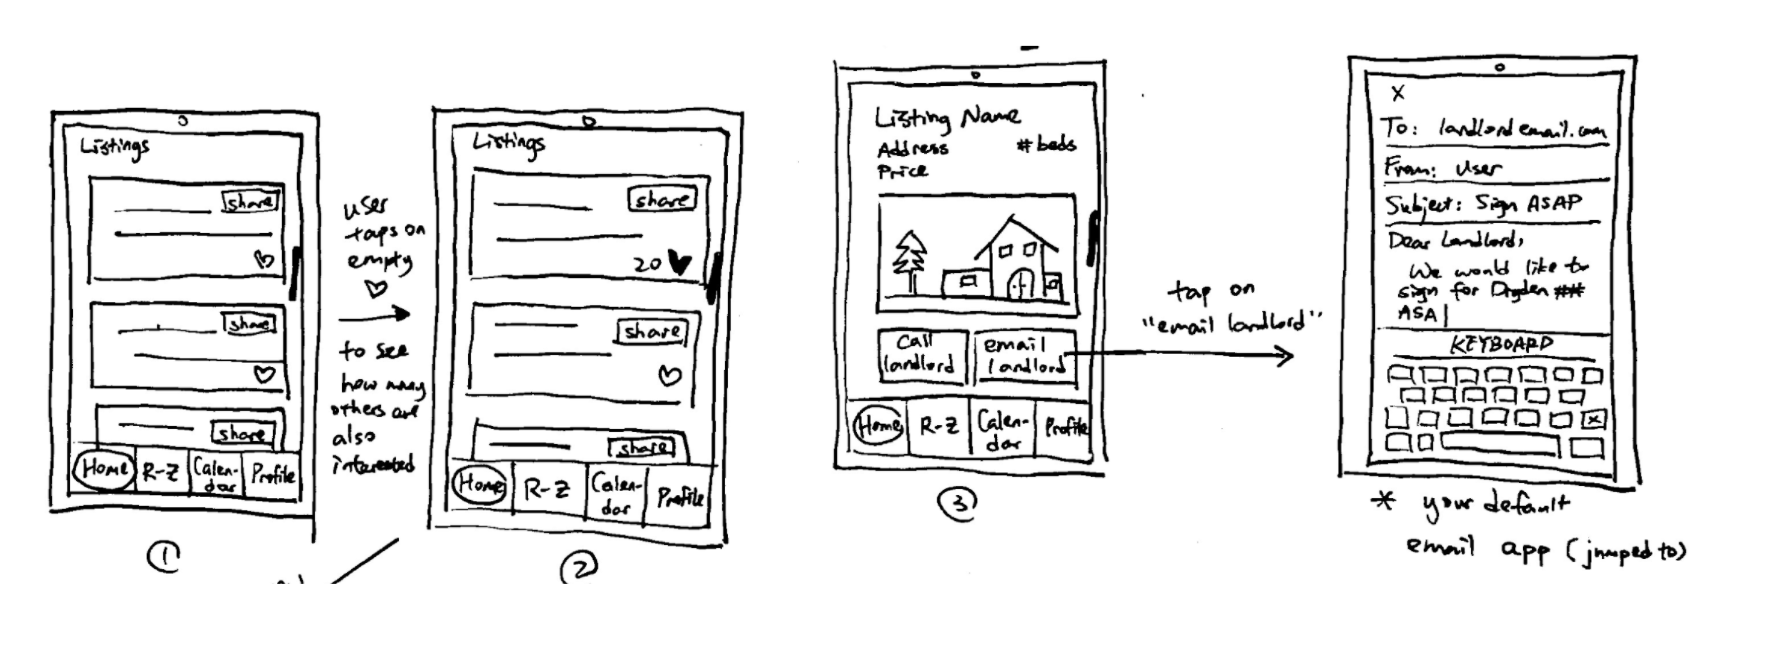 Listings
share
share
share
Home R-Z Calen-
dar Profile
1
user
taps on
empty
to see
how many
others are
also
interested
Listings
share
20
share
share
Home R-Z Calen-
dar Profile
2
Listing Name
Address # beds
Price
call
landlord
email
landlord
Home R-Z Calen-
dar Profile
3
tap on
"email landlord"
X
To: landlordemail.com
From: User
Subject: Sign ASAP
Dear Landlord,
We would like to
sign for Dryden ##
ASA|
KEYBOARD
x
* your default
email app (jumped to)